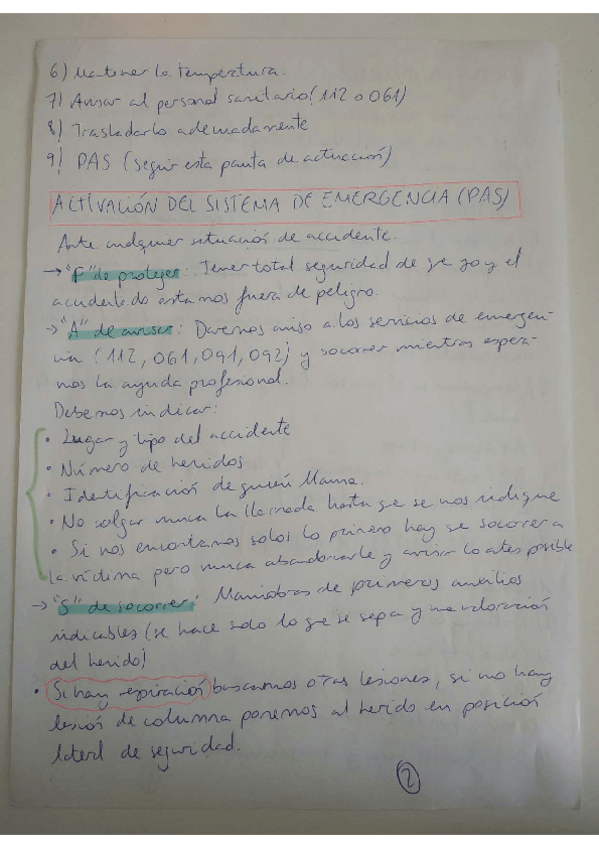 6) Mantener la temperatura.
7) Avisar al personal sanitario (112 o 061)
8) Trasladarlo adecuadamente
9) PAS (seguir esta pauta de actuación)
ACTIVACIÓN DEL SISTEMA DE EMERGENCIA (PAS)
Ante cualquier situación de accidente.
→ "P" de proteger: Tener total seguridad de qe yo y el
accidentado estamos fuera de peligro.
→ "A" de avisar: Daremos aviso a los servicios de emergen-
cia (112, 061, 091, 092) y socorrer mientras espera-
mos la ayuda profesional.
Debemos indicar:
• Lugar y tipo del accidente
• Número de heridos
• Identificación de quién llama.
• No colgar nunca la llamada hasta qe se nos indique
• Si nos encontamos solos lo primero hay qe socorrer a
la víctima pero nunca abandonarle y avisar lo antes posible
→ "S" de socorrer: Maniobras de primeros auxilios
indicables (se hace solo lo qe se sepa y una valoración
del herido)
• Si hay respiración buscamos otras lesiones, si no hay
lesión de columna ponemos al herido en posición
lateral de seguridad.
2